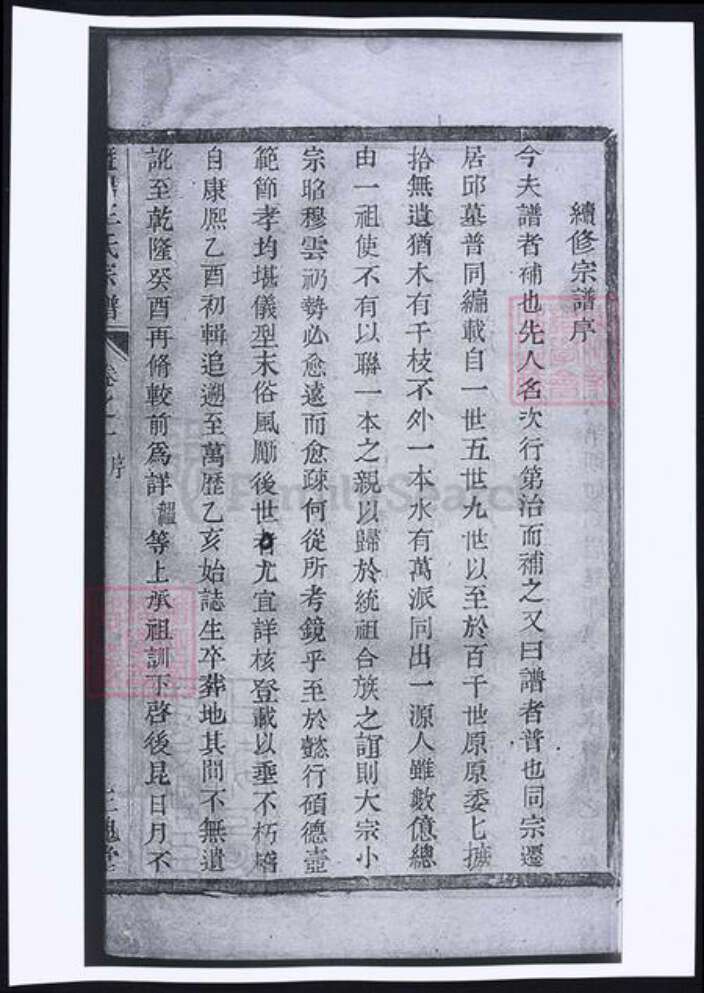 續修宗譜序
今夫譜者補也先人名次行第治而補之又曰譜者普也同宗遷
居邱墓普同編載自一世五世九世以至於百千世原原委七摭
拾無遺猶木有千枝不外一本水有萬派同出一源人雖數億總
由一祖使不有以聯一本之親以歸於統祖合族之誼則大宗小
宗昭穆雲礽勢必愈遠而愈疎何從所考鏡乎至於懿行碩德壼
範節孝均堪儀型末俗風勵後世者尤宜詳核登載以垂不朽
自康熙乙酉初輯追遡至萬歷乙亥始誌生卒葬地其間不無遺
訛至乾隆癸酉再脩較前爲詳 等上承祖訓下啓後昆日月不
王氏宗譜 卷之一 序 三槐堂
FamilySearch